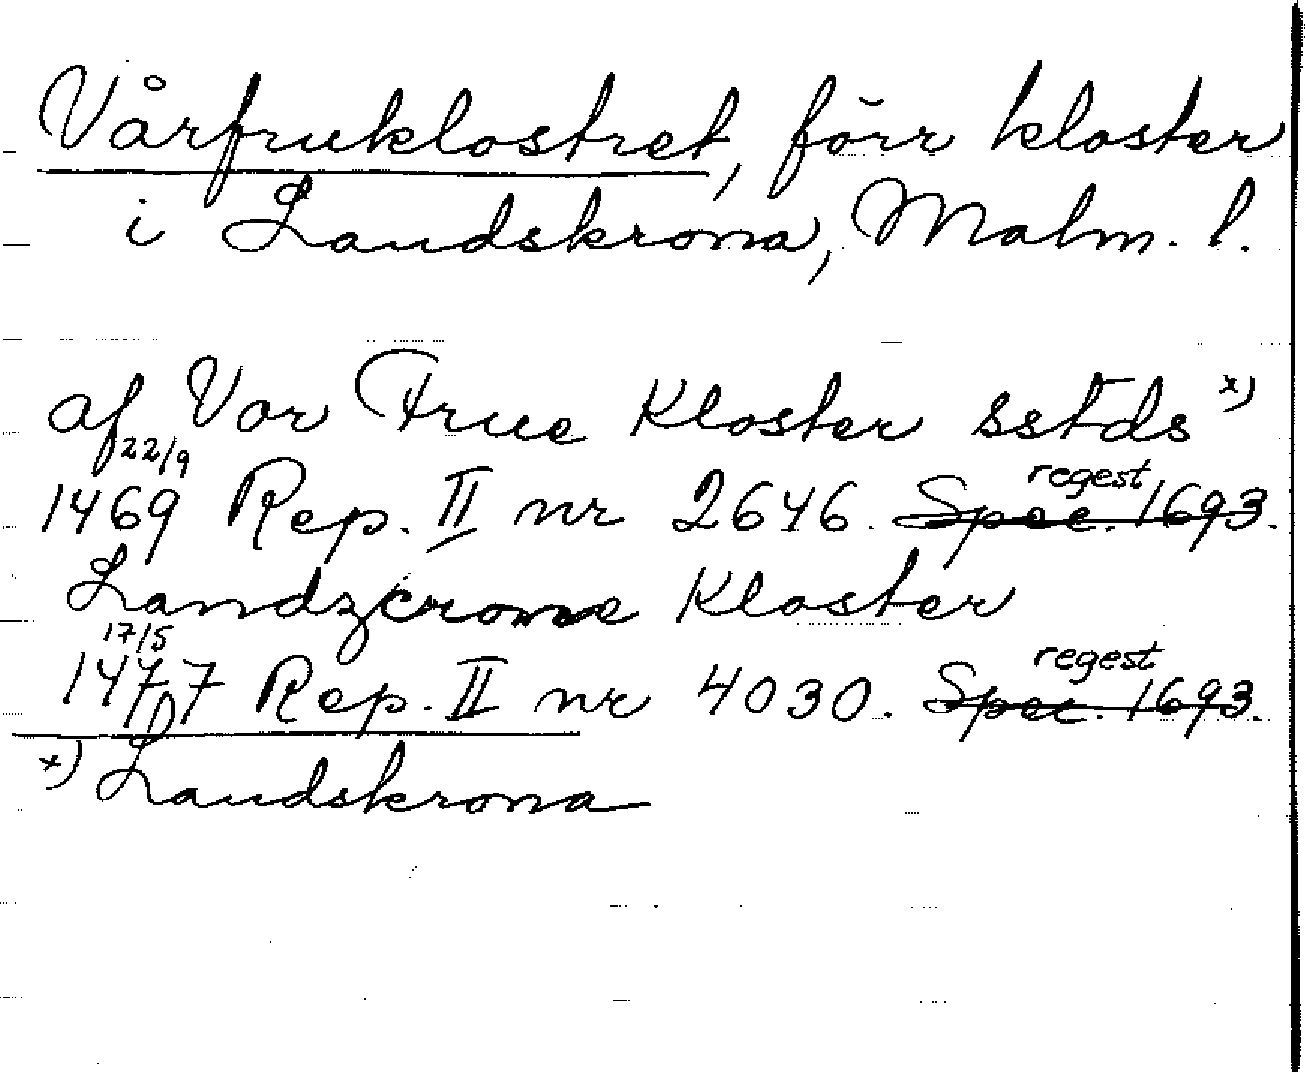 Vårfruklostret, förr kloster
i Landskrona, Malm. l.
af Vor Frue Kloster sstds x)
22/9
1469 Rep. II nr 2646. Spec. regest 1693.
Landzcrone Kloster
17/5
1477 Rep. II nr 4030. Spec. regest 1693.
x) Landskrona